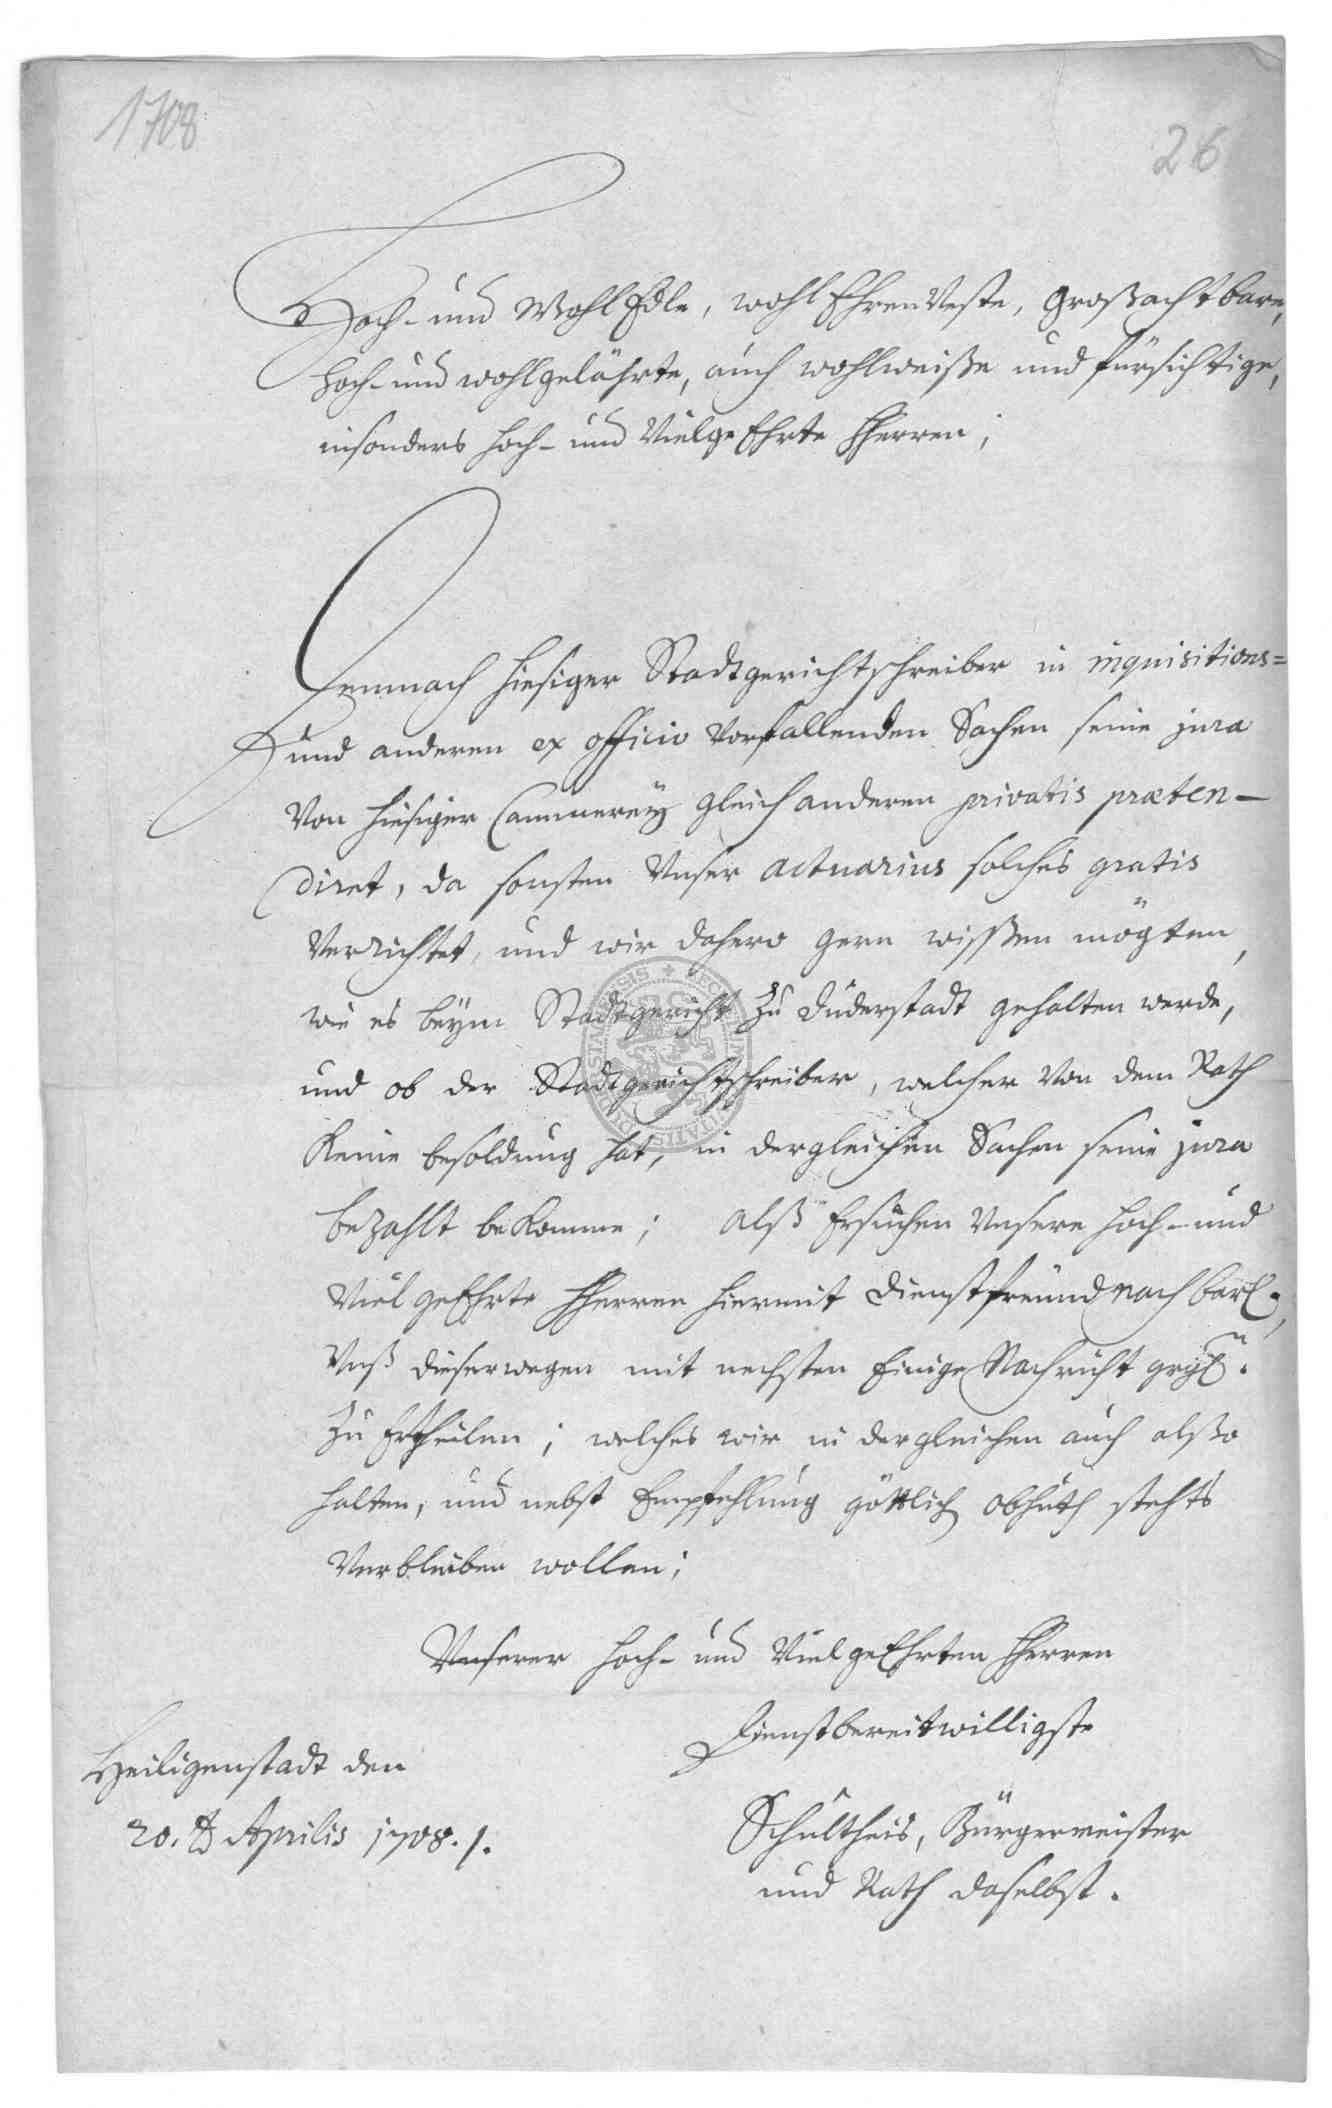 1708
26
Hoch- und WohlEdle, wohlEhrenVeste, Großachtbare,
hoch- und wohlgelährte, auch wohlweiße und fürsichtige,
insonders hoch- und VielgeEhrte Herren;
Demnach hiesiger Stadtgerichtschreiber in inquisitions-
und anderen ex officio Vorfallenden Sachen seine jura
Von hiesiger Cammereÿ gleich anderen privatis præten-
diret, da sonsten Unser actuarius solches gratis
Verrichtet, und wir dahero gern wissßen mögten,
wie es beÿm Stadtgericht zu Duderstadt gehalten werde,
und ob der Stadtgerichtschreiber, welcher Von dem Rath
Keine besoldung hat, in dergleichen Sachen seine jura
bezahlt beKomme; alß Ersuchen Unsere hoch- und
VielgeEhrte Herren hiermit dienstfreundnachbarl.,
Unß dieserwegen mit nechsten Einige Nachricht
zu Ertheilen; welches wir in dergleichen auch alßo
halten, und nebst Empfehlung göttlich obhuth stehts
Verbleiben wollen;
Unserer hoch- und VielgeEhrten Herren
Dienstbereitwilligste
Heiligenstadt den
20. Aprilis 1708.
Schultheis, Bürgermeister
und Rath daselbst.